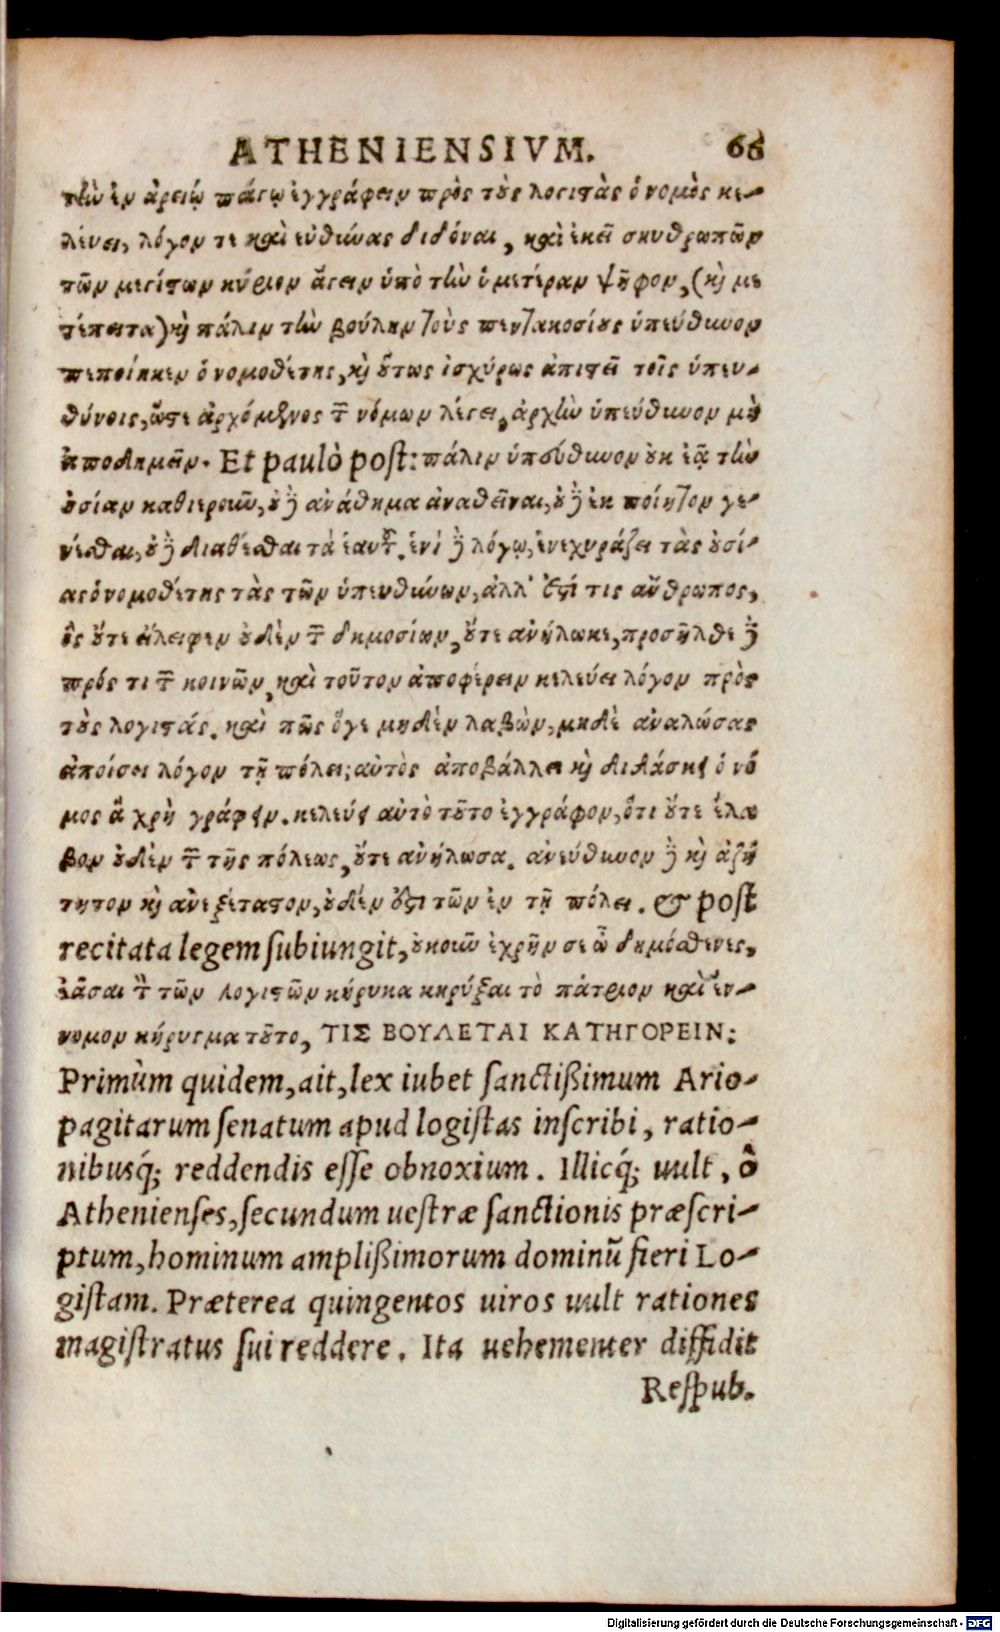 ATHENIENSIVM. 66
τὴν ἐν ἀρείῳ πάγῳ ἐγγράφειν πρὸς τοὺς λογιστὰς ὁ νομὸς κε-
λεύει, λόγον τε καὶ εὐθύνας διδόναι, καὶ ἐκεῖ σκυθρωπῶν
τῶν μεγίστων κύριον ἄγειν ὑπὸ τὴν ὑμετέραν ψῆφον, (καὶ με
τέπειτα) καὶ πάλιν τὴν βούλην τοὺς πεντακοσίους ὑπεύθυνον
πεποίηκεν ὁ νομοθέτης, καὶ οὕτως ἰσχύρως ἀπιστεῖ τοῖς ὑπευ-
θύνοις, ὥστε ἀρχόμενος τῶν νόμων λέγει, ἀρχὴν ὑπεύθυνον μὴ
ἀποδημεῖν. Et paulò post: πάλιν ὑπεύθυνον οὐκ ἐᾷ τὴν
οὐσίαν καθιεροῦν, οὐδὲ ἀνάθημα ἀναθεῖναι, οὐδὲ ἐκποίητον γε-
νέσθαι, οὐδὲ διαθέσθαι τὰ ἑαυτοῦ. ἑνὶ δὲ λόγῳ, ἐνεχυράζει τὰς οὐσί-
ας ὁ νομοθέτης τὰς τῶν ὑπευθύνων, ἀλλ' ἔστι τις ἄνθρωπος,
ὃς οὔτε εἴλειφεν οὐδὲν τῶν δημοσίων, οὔτε ἀνήλωκε, προσῆλθε δὲ
πρός τι τῶν κοινῶν, καὶ τοῦτον ἀποφέρειν κελεύει λόγον πρὸς
τοὺς λογιστάς. καὶ πῶς ὅγε μηδὲν λαβὼν, μηδὲ ἀναλώσας
ἀποίσει λόγον τῇ πόλει; αὐτὸς ἀποβάλλει καὶ διδάσκει ὁ νό
μος ἃ χρὴ γράφειν. κελεύει αὐτὸ τοῦτο ἐγγράφον, ὅτι οὔτε ἔλα
βον οὐδὲν τῶν τῆς πόλεως, οὔτε ἀνήλωσα. ἀνεύθυνον δὲ καὶ ἀζή
τητον καὶ ἀνεξέταστον, οὐδέν ἐστι τῶν ἐν τῇ πόλει. & post
recitata legem subiungit, οὐκοῦν ἐχρῆν σε ὦ δημόσθενες,
ἐᾶσαι τὸν τῶν λογιστῶν κήρυκα κηρύξαι τὸ πάτριον καὶ ἔν-
νομον κήρυγμα τοῦτο, ΤΙΣ ΒΟΥΛΕΤΑΙ ΚΑΤΗΓΟΡΕΙΝ;
Primùm quidem, ait, lex iubet sanctißimum Ario-
pagitarum senatum apud logistas inscribi, ratio-
nibusq́; reddendis esse obnoxium. Illicq́; uult, ô
Athenienses, secundum uestræ sanctionis præscri-
ptum, hominum amplißimorum dominũ fieri Lo-
gistam. Præterea quingentos uiros uult rationes
magistratus sui reddere. Ita uehementer diffidit
Respub.
Digitalisierung gefördert durch die Deutsche Forschungsgemeinschaft - DFG